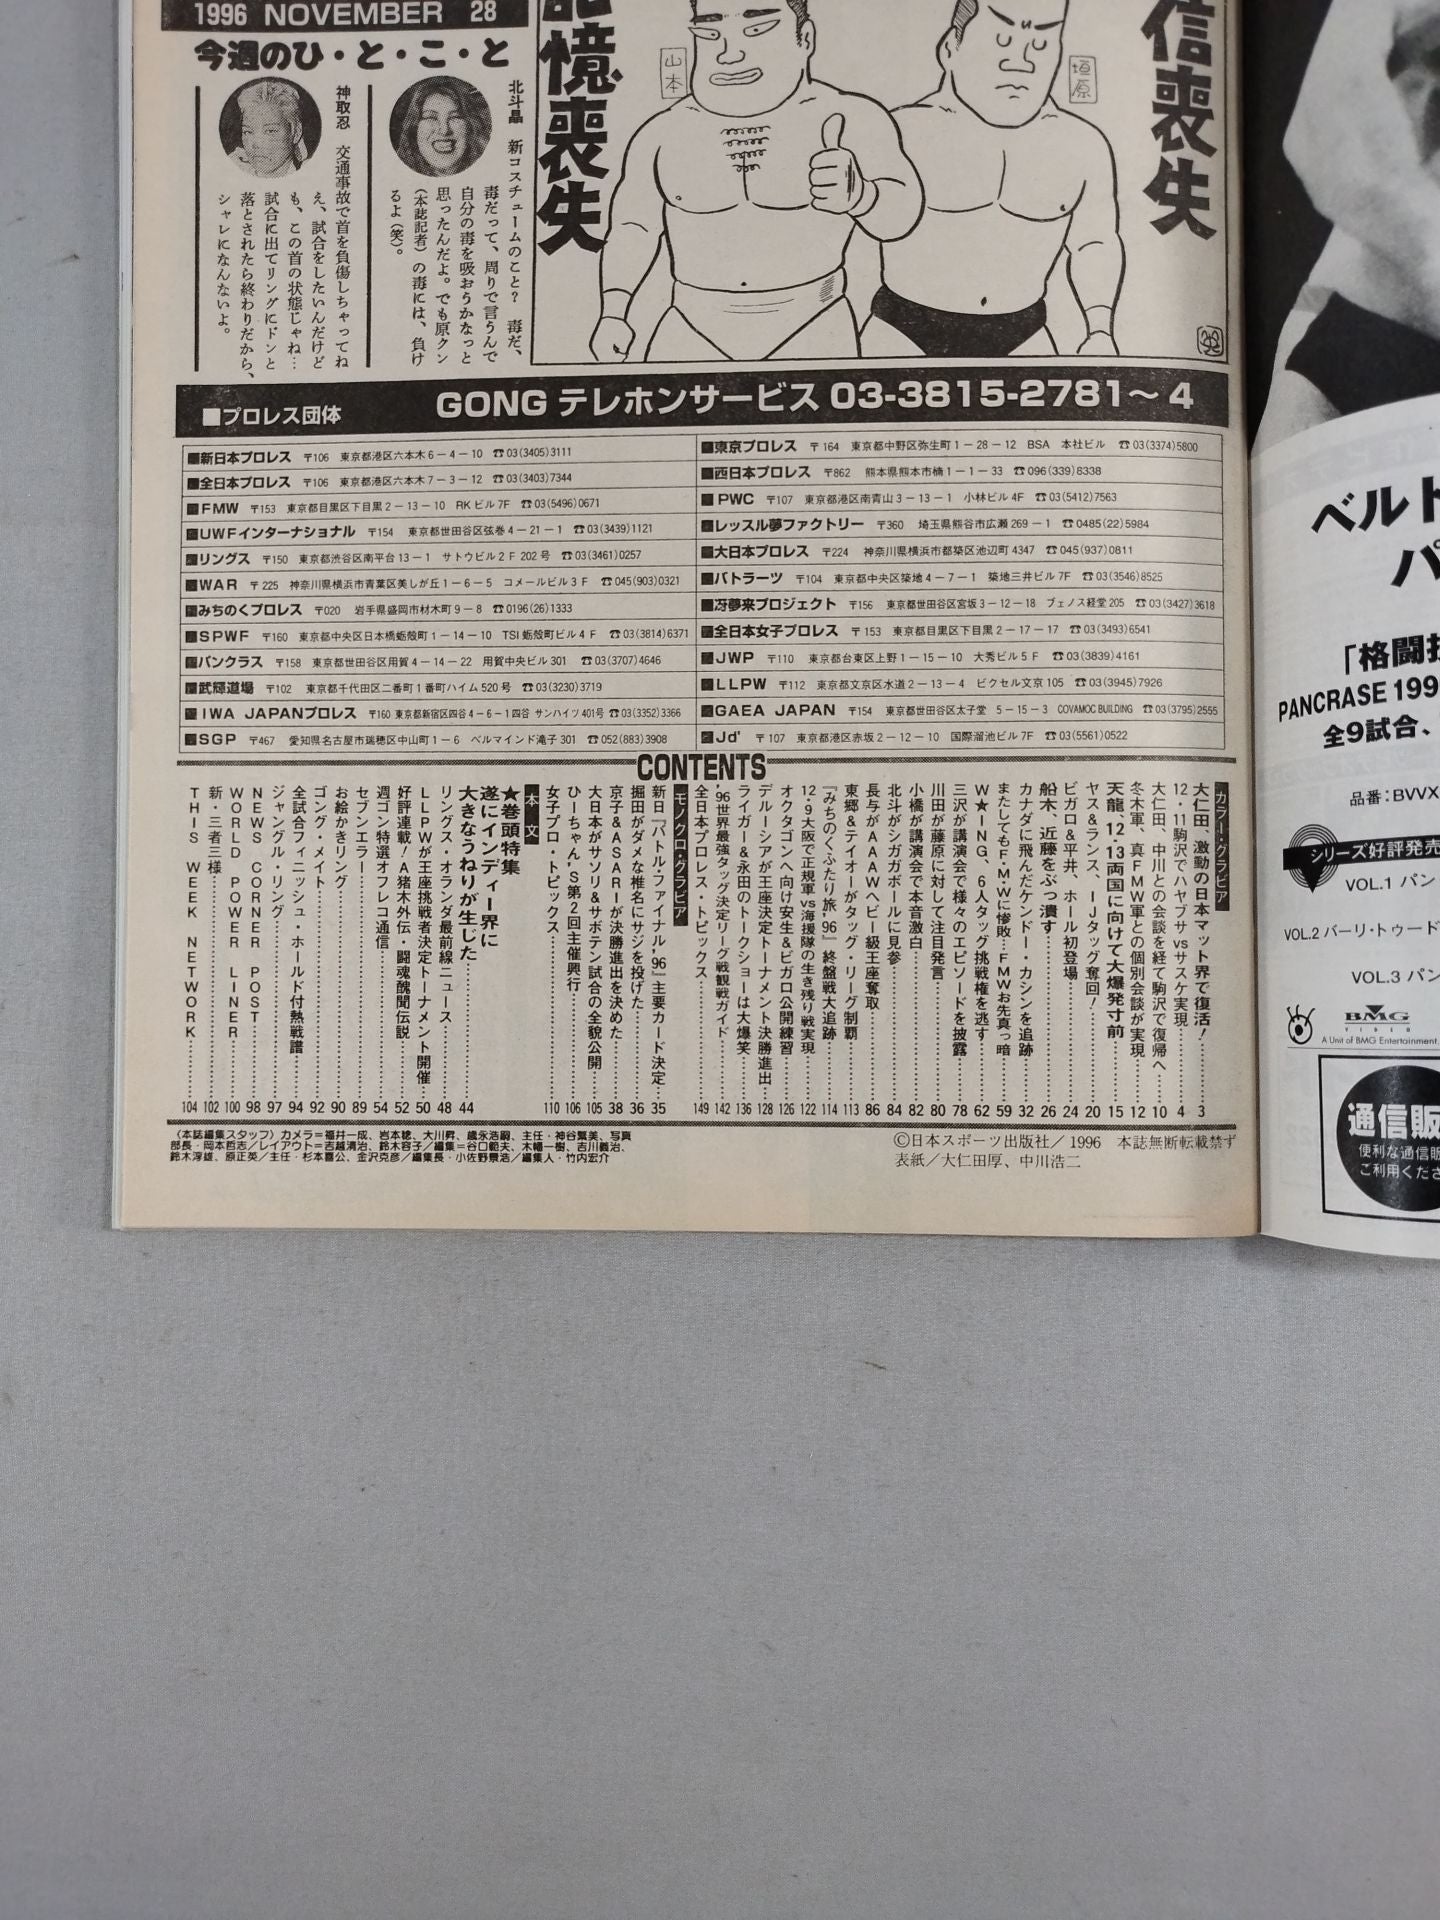 1996 NOVEMBER 28
今週のひ・と・こ・と
北斗晶 新コスチュームのこと? 毒だ、
毒だって、周りで言うんで
自分の毒を吸おうかなっと
思ったんだよ。でも原クン
(本誌記者)の毒には、負け
るよ(笑)。
神取忍 交通事故で首を負傷しちゃってね
え、試合をしたいんだけど
も、この首の状態じゃね…
試合に出てリングにドンと
落とされたら終わりだから、
シャレになんないよ。
憶喪失
信喪失
山本
垣原
■プロレス団体 GONG テレホンサービス 03-3815-2781〜4
■新日本プロレス 〒106 東京都港区六本木6-4-10 ☎03(3405)3111
■全日本プロレス 〒106 東京都港区六本木7-3-12 ☎03(3403)7344
■FMW 〒153 東京都目黒区下目黒2-13-10 RKビル7F ☎03(5496)0671
■UWFインターナショナル 〒154 東京都世田谷区弦巻4-21-1 ☎03(3439)1121
■リングス 〒150 東京都渋谷区南平台13-1 サトウビル2F202号 ☎03(3461)0257
■WAR 〒225 神奈川県横浜市青葉区美しが丘1-6-5 コメールビル3F ☎045(903)0321
■みちのくプロレス 〒020 岩手県盛岡市材木町9-8 ☎0196(26)1333
■SPWF 〒160 東京都中央区日本橋蛎殻町1-14-10 TSI蛎殻町ビル4F ☎03(3814)6371
■パンクラス 〒158 東京都世田谷区用賀4-14-22 用賀中央ビル301 ☎03(3707)4646
■武輝道場 〒102 東京都千代田区二番町1番町ハイム520号 ☎03(3230)3719
■IWA JAPANプロレス 〒160 東京都新宿区四谷4-6-1四谷サンハイツ401号 ☎03(3352)3366
■SGP 〒467 愛知県名古屋市瑞穂区中山町1-6 ベルマインド滝子301 ☎052(883)3908
■東京プロレス 〒164 東京都中野区弥生町1-28-12 BSA 本社ビル ☎03(3374)5800
■西日本プロレス 〒862 熊本県熊本市楠1-1-33 ☎096(339)8338
■PWC 〒107 東京都港区南青山3-13-1 小林ビル4F ☎03(5412)7563
■レッスル夢ファクトリー 〒360 埼玉県熊谷市広瀬269-1 ☎0485(22)5984
■大日本プロレス 〒224 神奈川県横浜市都築区池辺町4347 ☎045(937)0811
■バトラーツ 〒104 東京都中央区築地4-7-1 築地三井ビル7F ☎03(3546)8525
■冴夢来プロジェクト 〒156 東京都世田谷区宮坂3-12-18 ブェノス経堂205 ☎03(3427)3618
■全日本女子プロレス 〒153 東京都目黒区下目黒2-17-17 ☎03(3493)6541
■JWP 〒110 東京都台東区上野1-15-10 大秀ビル5F ☎03(3839)4161
■LLPW 〒112 東京都文京区水道2-13-4 ビクセル文京105 ☎03(3945)7926
■GAEA JAPAN 〒154 東京都世田谷区太子堂 5-15-3 COVAMOC BUILDING ☎03(3795)2555
■Jd' 〒107 東京都港区赤坂2-12-10 国際溜池ビル7F ☎03(5561)0522
CONTENTS
カラー・グラビア
大仁田、激動の日本マット界で復活!…3
12・11駒沢でハヤブサvsサスケ実現…4
大仁田、中川との会談を経て駒沢で復帰へ…10
冬木軍、真FMW軍との個別会談が実現…12
天龍、12・13両国に向けて大爆発寸前…15
ヤス&ランス、IJタッグ奪回!…20
ビガロ&平井、ホール初登場…24
船木、近藤をぶっ潰す…26
カナダに飛んだケンドー・カシンを追跡…32
またしてもF・M・Wに惨敗…FMWお先真っ暗…59
W★ING、6人タッグ挑戦権を逃す…62
三沢が講演会で様々のエピソードを披露…78
川田が藤原に対して注目発言…80
小橋が講演会で本音激白…82
北斗がシガガボールに見参…84
長与がAAAWヘビー級王座奪取…86
東郷&テイオーがタッグ・リーグ制覇…113
『みちのくふたり旅'96』終盤戦大追跡…114
12・9大阪で正規軍vs海援隊の生き残り戦実現…122
オクタゴンへ向け安生&ビガロ公開練習…126
デルーシアが王座決定トーナメント決勝進出…128
ライガー&永田のトークショーは大爆笑…136
'96世界最強タッグ決定リーグ戦観戦ガイド…142
全日本プロレス・トピックス…149
モノクロ・グラビア
新日『バトル・ファイナル'96』主要カード決定…35
堀田がダメな椎名にサジを投げた…36
京子&ASARIが決勝進出を決めた…38
大日本がサソリ&サボテン試合の全貌公開…105
ひーちゃん'S第2回主催興行…106
女子プロ・トピックス…110
本文
★巻頭特集
遂にインディー界に
大きなうねりが生じた…44
リングス・オランダ最前線ニュース…48
LLPWが王座挑戦者決定トーナメント開催…50
好評連載!A猪木外伝・闘魂醜聞伝説…52
週ゴン特選オフレコ通信…54
セブンエラー…89
お絵かきリング…90
ゴング・メイト…92
全試合フィニッシュ・ホールド付熱戦譜…94
ジャングル・リング…97
NEWS CORNER POST…98
WORLD POWER LINER…100
新・三者三様…102
THIS WEEK NETWORK…104
〈本誌編集スタッフ〉カメラ=福井一成、岩本稔、大川昇、歳永浩嗣、主任・神谷繁美、写真
部長・岡本哲志/レイアウト=吉越清治、鈴木容子/編集=谷口範夫、木幡一樹、吉川義治、
鈴木淳雄、原正英/主任・杉本喜公、金沢克彦/編集長・小佐野景浩/編集人・竹内宏介
©日本スポーツ出版社/1996 本誌無断転載禁ず
表紙/大仁田厚、中川浩二
ベルト
パ
「格闘技
PANCRASE 199
全9試合、
品番:BVVX
シリーズ好評発売
VOL.1 パン
VOL.2 バーリ・トゥード
VOL.3 パン
BMG
VIDEO
A Unit of BMG Entertainment.
通信販
便利な通信販
ご利用くださ